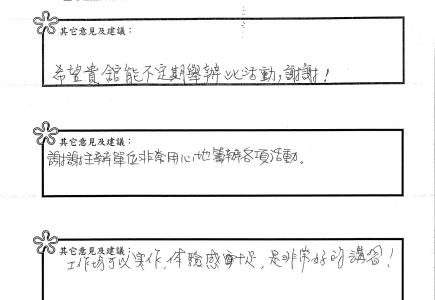 其它意見及建議：
希望貴館能不定期舉辦此活動，謝謝！
其它意見及建議：
謝謝主辦單位非常用心地籌辦各項活動。
其它意見及建議：
工作坊可以實作，体驗感十足，是非常好的講習！